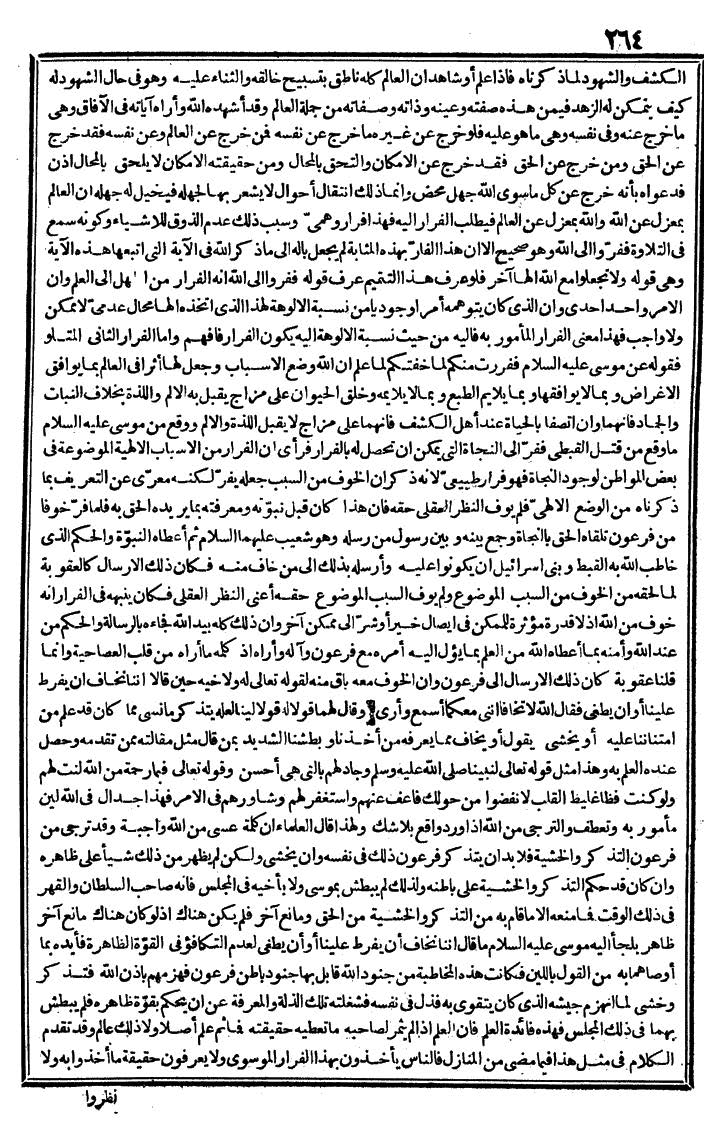 ٢٦٤
الكشف والشهود لماذكرناه فاذاعلم أوشاهدان العالم كله ناطق بتسبيح خالقه والثناء عليه وهو فى حال الشهود له
كيف يتمكن له الزهد فيمن هذه صفته وعينه وذاته وصفاته من جملة العالم وقد أشهده الله وأراه آياته فى الآفاق وهى
ماخرج عنه وفى نفسه وهى ماهو عليه فلو خرج عن غيره ماخرج عن نفسه فن خرج عن العالم وعن نفسه فقد خرج
عن الحق ومن خرج عن الحق فقد خرج عن الامكان والتحق بالمحال ومن حقيقته الامكان لا يلحق بالمحال اذن
فدعواه بأنه خرج عن كل ماسوى الله جهل محض وانماذلك انتقال أحوال لا يشعر بها لجهله فيخيل له جهله ان العالم
بمعزل عن الله والله بمعزل عن العالم فيطلب الفرار اليه فهذا فرار وهمىّ وسبب ذلك عدم الذوق للاشياء وكونه سمع
فى التلاوة ففرّوا الى الله وهو صحيح الاان هذا الفارّ بهذه المثابة لم يجعل باله الى ماذكر الله فى الآية التى اتبعها هذه الآية
وهى قوله ولا تجعلوا مع الله الها آخر فلو عرف هذا التتميم عرف قوله ففروا الى الله انه الفرار من الجهل الى العلم وان
الامر واحد احدى وان الذى كان يتوهمه أمر اوجوديا من نسبة الالوهة لهذا الذى اتخذه الها محال عدمىّ لا ممكن
ولا واجب فهذا معنى الفرار المأمور به فاليه من حيث نسبة الالوهة اليه يكون الفرار فافهم واما الفرار الثانى المتلو
فقوله عن موسى عليه السلام ففررت منكم لما خفتكم لما علم ان الله وضع الاسباب وجعل لها أثرا فى العالم بما يوافق
الاغراض وبما لا يوافقها وبما يلايم الطبع وبما لا يلايمه وخلق الحيوان على مزاج يقبل به الالم واللذة بخلاف النبات
والجماد فانهما وان اتصفا بالحياة عند أهل الكشف فانهما على مزاج لا يقبل اللذة والالم ووقع من موسى عليه السلام
ماوقع من قتل القبطى ففرّ الى النجاة التى يمكن ان تحصل له بالفرار فرأى ان الفرار من الاسباب الالهية الموضوعة فى
بعض المواطن لوجود النجاة فهو فرار طبيعىّ لانه ذكر ان الخوف من السبب جعله يفرّ لكنه معرّى عن التعريف بما
ذكرناه من الوضع الالهىّ فلم يوف النظر العقلى حقه فان هذا كان قبل نبوّته ومعرفته بما يريده الحق به فلما فرّ خوفا
من فرعون تلقاه الحق بالنجاة وجمع بينه وبين رسول من رسله وهو شعيب عليهما السلام ثم أعطاه النبوّة والحكم الذى
خاطب الله به القبط وبنى اسرائيل ان يكونوا عليه وأرسله بذلك الى من خاف منه فكان ذلك الارسال كالعقوبة
لما لحقه من الخوف من السبب الموضوع ولم يوف السبب الموضوع حقه أعنى النظر العقلى فكان ينبهه فى الفرار انه
خوف من الله اذ لا قدرة مؤثرة للممكن فى ايصال خير أو شرّ الى ممكن آخر وان ذلك كله بيد الله فجاءه بالرسالة والحكم من
عند الله وأمنه بما أعطاه الله من العلم بما يؤل اليه أمره مع فرعون وآله وأراه اذ كله ما أراه من قلب العصا حية وانما
قلنا عقوبة كان ذلك الارسال الى فرعون وان الخوف معه باق منه لقوله تعالى له ولاخيه حين قالا اننا نخاف ان يفرط
علينا أو ان يطغى فقال الله لا تخافا اننى معكما أسمع وأرى وقال لهما قولا له قولا لينا لعله يتذكر ما نسى مما كان قد علم من
امتناننا عليه أو يخشى يقول أو يخاف مما يعرفه من أخذنا وبطشنا الشديد بمن قال مثل مقالته ممن تقدمه وحصل
عنده العلم به وهذا مثل قوله تعالى لنبينا صلى الله عليه وسلم وجادلهم بالتى هى أحسن وقوله تعالى فبما رحمة من الله لنت لهم
ولو كنت فظا غليظ القلب لا نفضوا من حولك فاعف عنهم واستغفر لهم وشاورهم فى الامر فهذا جدال فى الله لين
مأمور به وتعطف والترجى من الله اذا ورد واقع بلا شك ولهذا قال العلماء ان كلمة عسى من الله واجبة وقد ترجى من
فرعون التذكر والخشية فلا بد ان يتذكر فرعون ذلك فى نفسه وان يخشى ولكن لم يظهر من ذلك شيأ على ظاهره
وان كان قد حكم التذكر والخشية على باطنه ولذلك لم يبطش بموسى ولا بأخيه فى المجلس فانه صاحب السلطان والقهر
فى ذلك الوقت فما منعه الا ما قام به من التذكر والخشية من الحق ومانع آخر فلم يكن هناك اذ لو كان هناك مانع آخر
ظاهر يلجأ اليه موسى عليه السلام ما قال اننا نخاف أن يفرط علينا أو أن يطغى لعدم التكافؤ فى القوّة الظاهرة فأيده بما
أوصاهما به من القول باللين فكانت هذه المخاطبة من جنود الله قابل بها جنود باطن فرعون فهزمهم باذن الله فتذكر
وخشى لما انهزم جيشه الذى كان يتقوى به فذل فى نفسه فشغلته تلك الذلة والمعرفة عن ان يحكم بقوّة ظاهره فلم يبطش
بهما فى ذلك المجلس فهذه فائدة العلم فان العلم اذا لم يثمر لصاحبه ما تعطيه حقيقته فماثم علم أصلا ولا ذلك عالم وقد تقدم
الكلام فى مثل هذا فيما مضى من المنازل فالناس يأخذون بهذا الفرار الموسوى ولا يعرفون حقيقة ما أخذوا به ولا
نظروا